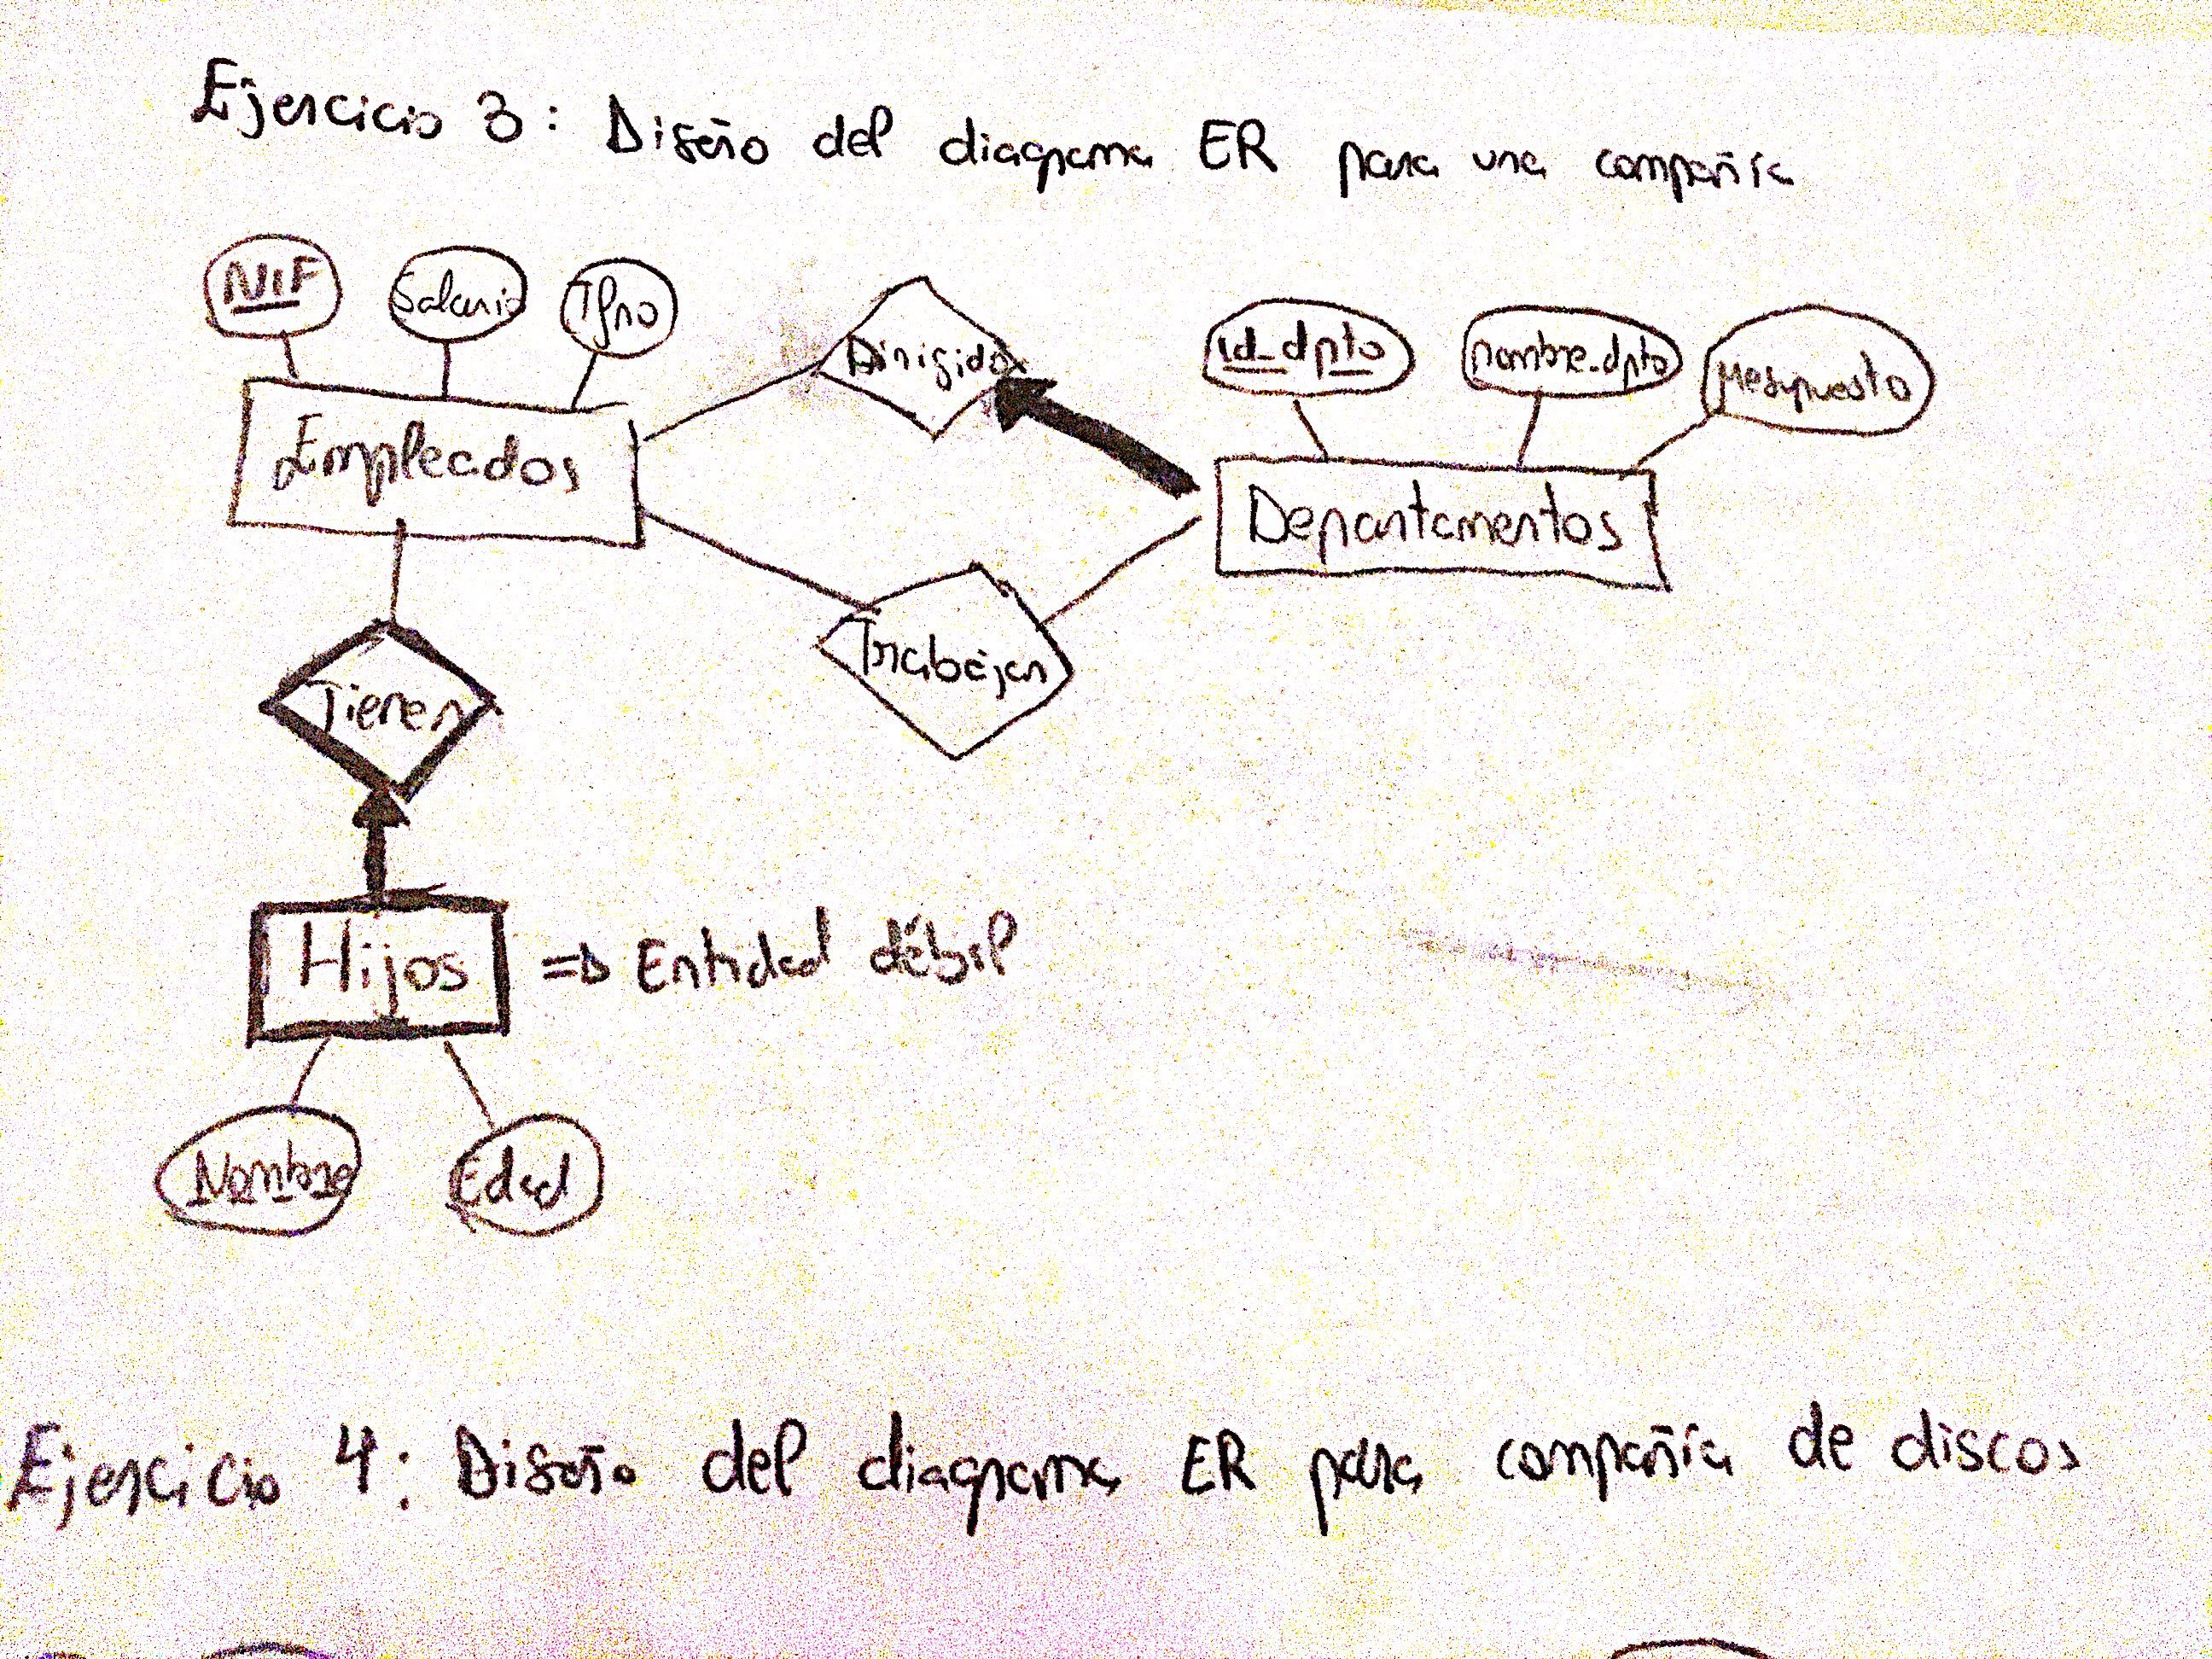 Ejercicio 3: Diseño del diagrama ER para una compañía
NIF Salario Tfno
Dirigidos
id_dpto nombre_dpto presupuesto
Empleados
Departamentos
Trabajan
Tienen
Hijos => Entidad débil
Nombre Edad
Ejercicio 4: Diseño del diagrama ER para compañía de discos